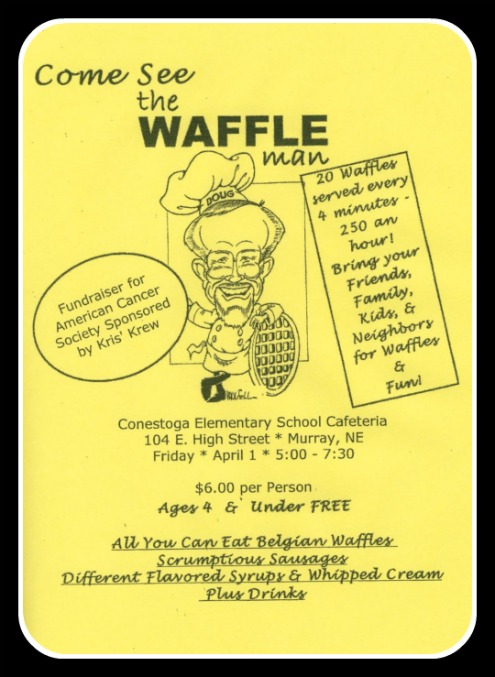 Come See
the
WAFFLE
man
DOUG
20 Waffles
served every
4 minutes -
250 an
hour!
Bring your
Friends,
Family,
Kids, &
Neighbors
for Waffles
&
Fun!
Fundraiser for
American Cancer
Society Sponsored
by Kris' Krew
Conestoga Elementary School Cafeteria
104 E. High Street * Murray, NE
Friday * April 1 * 5:00 - 7:30
$6.00 per Person
Ages 4 & Under FREE
All You Can Eat Belgian Waffles
Scrumptious Sausages
Different Flavored Syrups & Whipped Cream
Plus Drinks